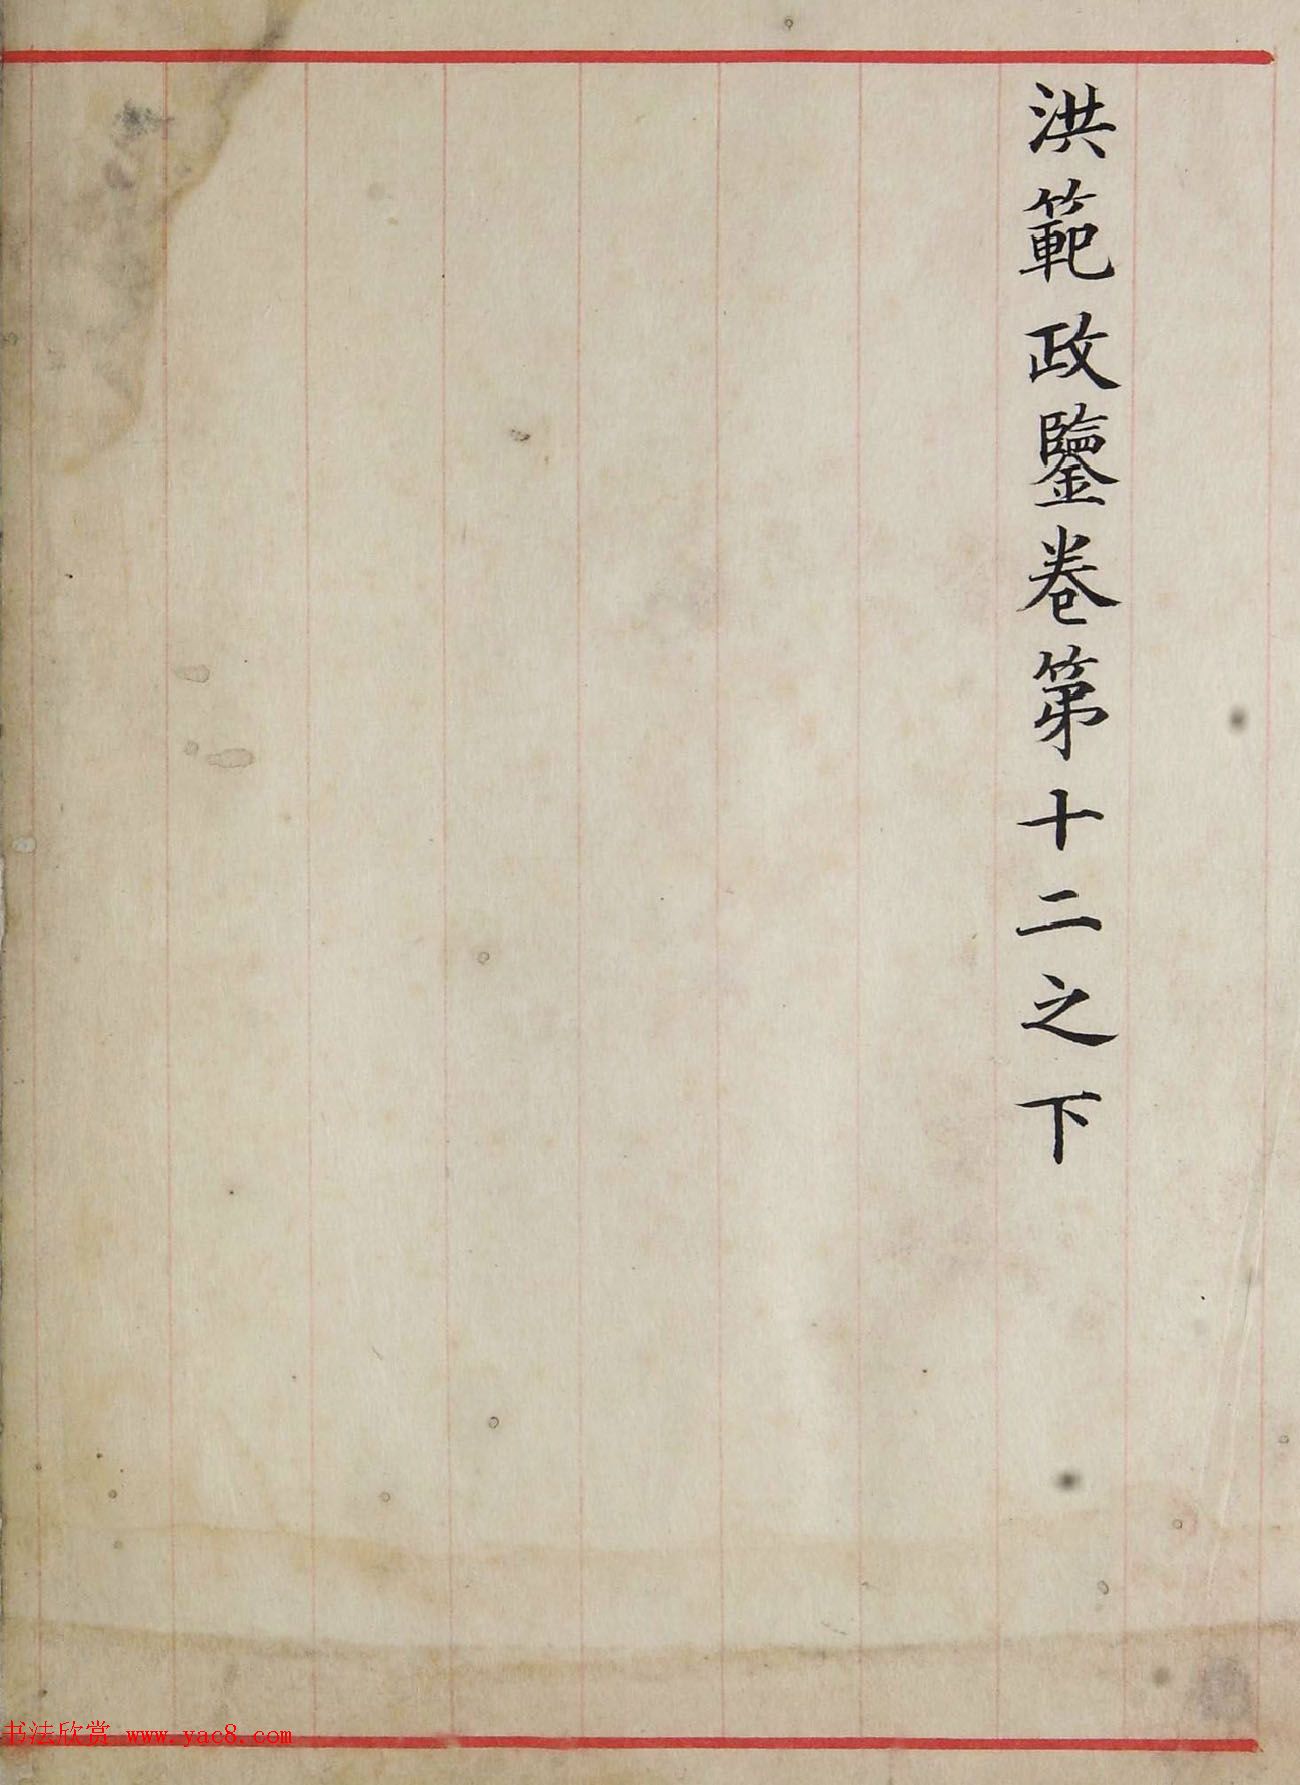 洪範政鑒卷第十二之下
书法欣赏 www.yac8.com